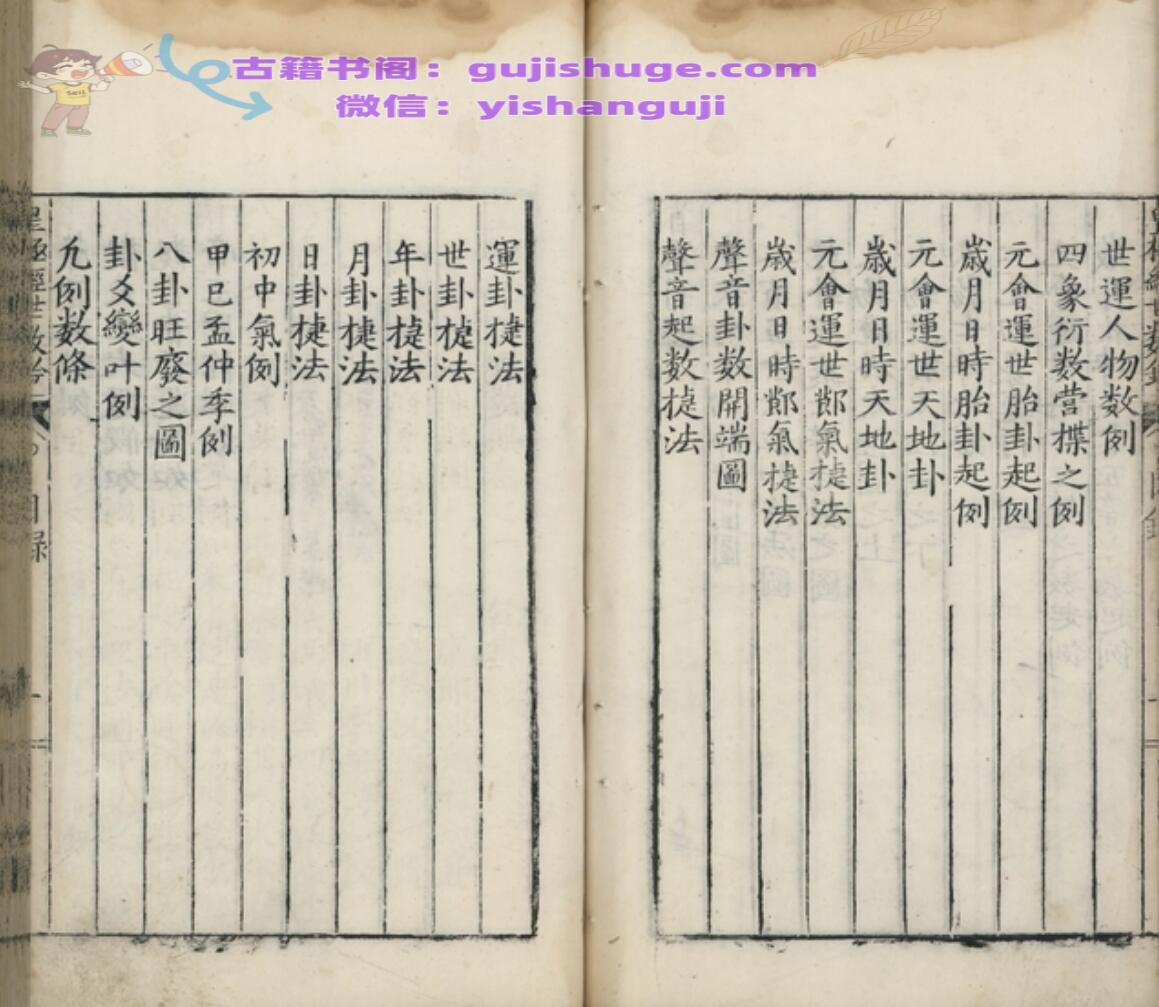 古籍书阁：gujishuge.com
微信：yishanguji
世運人物数例
四象衍数营揲之例
元會運世胎卦起例
歲月日時胎卦起例
元會運世天地卦
歲月日時天地卦
元會運世鄭氣捷法
歲月日時鄭氣捷法
聲音卦数開端圖
聲音起数捷法
運卦捷法
世卦捷法
年卦捷法
月卦捷法
日卦捷法
初中氣例
甲巳孟仲季例
八卦旺廢之圖
卦爻變叶例
九例数條